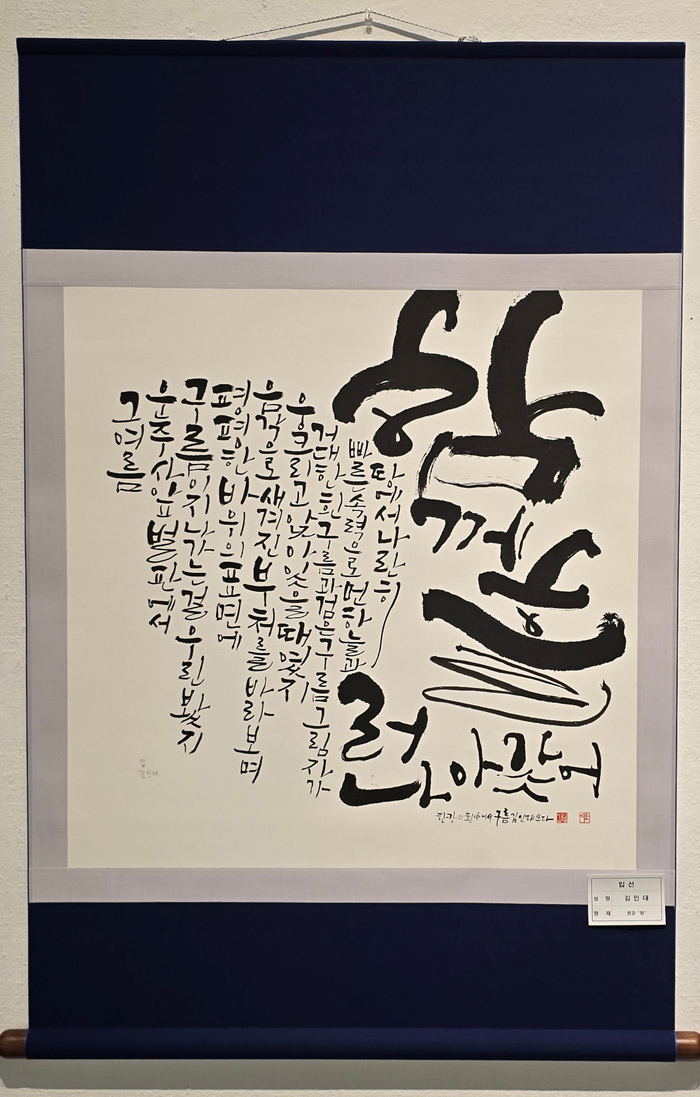 그 여름
운주사 앞 벌판에서
구름이 지나가는 걸 우린 봤지
평평한 바위의 표면에
음각으로 새겨진 부처를 바라보며
웅크리고 앉아 있을 때였지
거대한 흰 구름과 검은 구름 그림자가
빠른 속력으로 먼 하늘과
땅에서 나란히
한강의 흰 中에서 구름 김인대 쓰다
입선
성 명 김인대
명 제 한강 "흰"